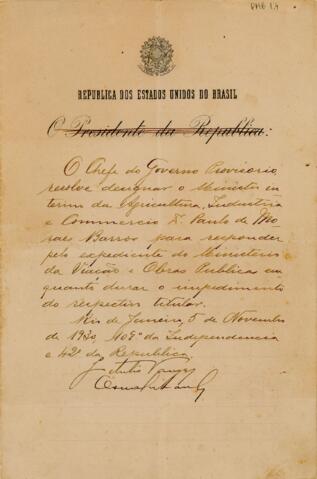 REPUBLICA DOS ESTADOS UNIDOS DO BRASIL
O Presidente da Republica:
O Chefe do Governo Provisorio,
resolve designar o Ministro in
terino da Agricultura, Industria
e Commercio Dr. Paulo de Mo
raes Barros para responder
pelo expediente do Ministerio
da Viação e Obras Publicas en
quanto durar o impedimento
do respectivo titular.
Rio de Janeiro, 5 de Novembro
de 1930, 109º da Independencia
e 42º da Republica.
Getulio Vargas